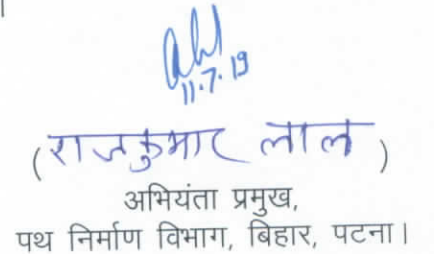 11.7.19
(राजकुमार लाल)
अभियंता प्रमुख,
पथ निर्माण विभाग, बिहार, पटना।